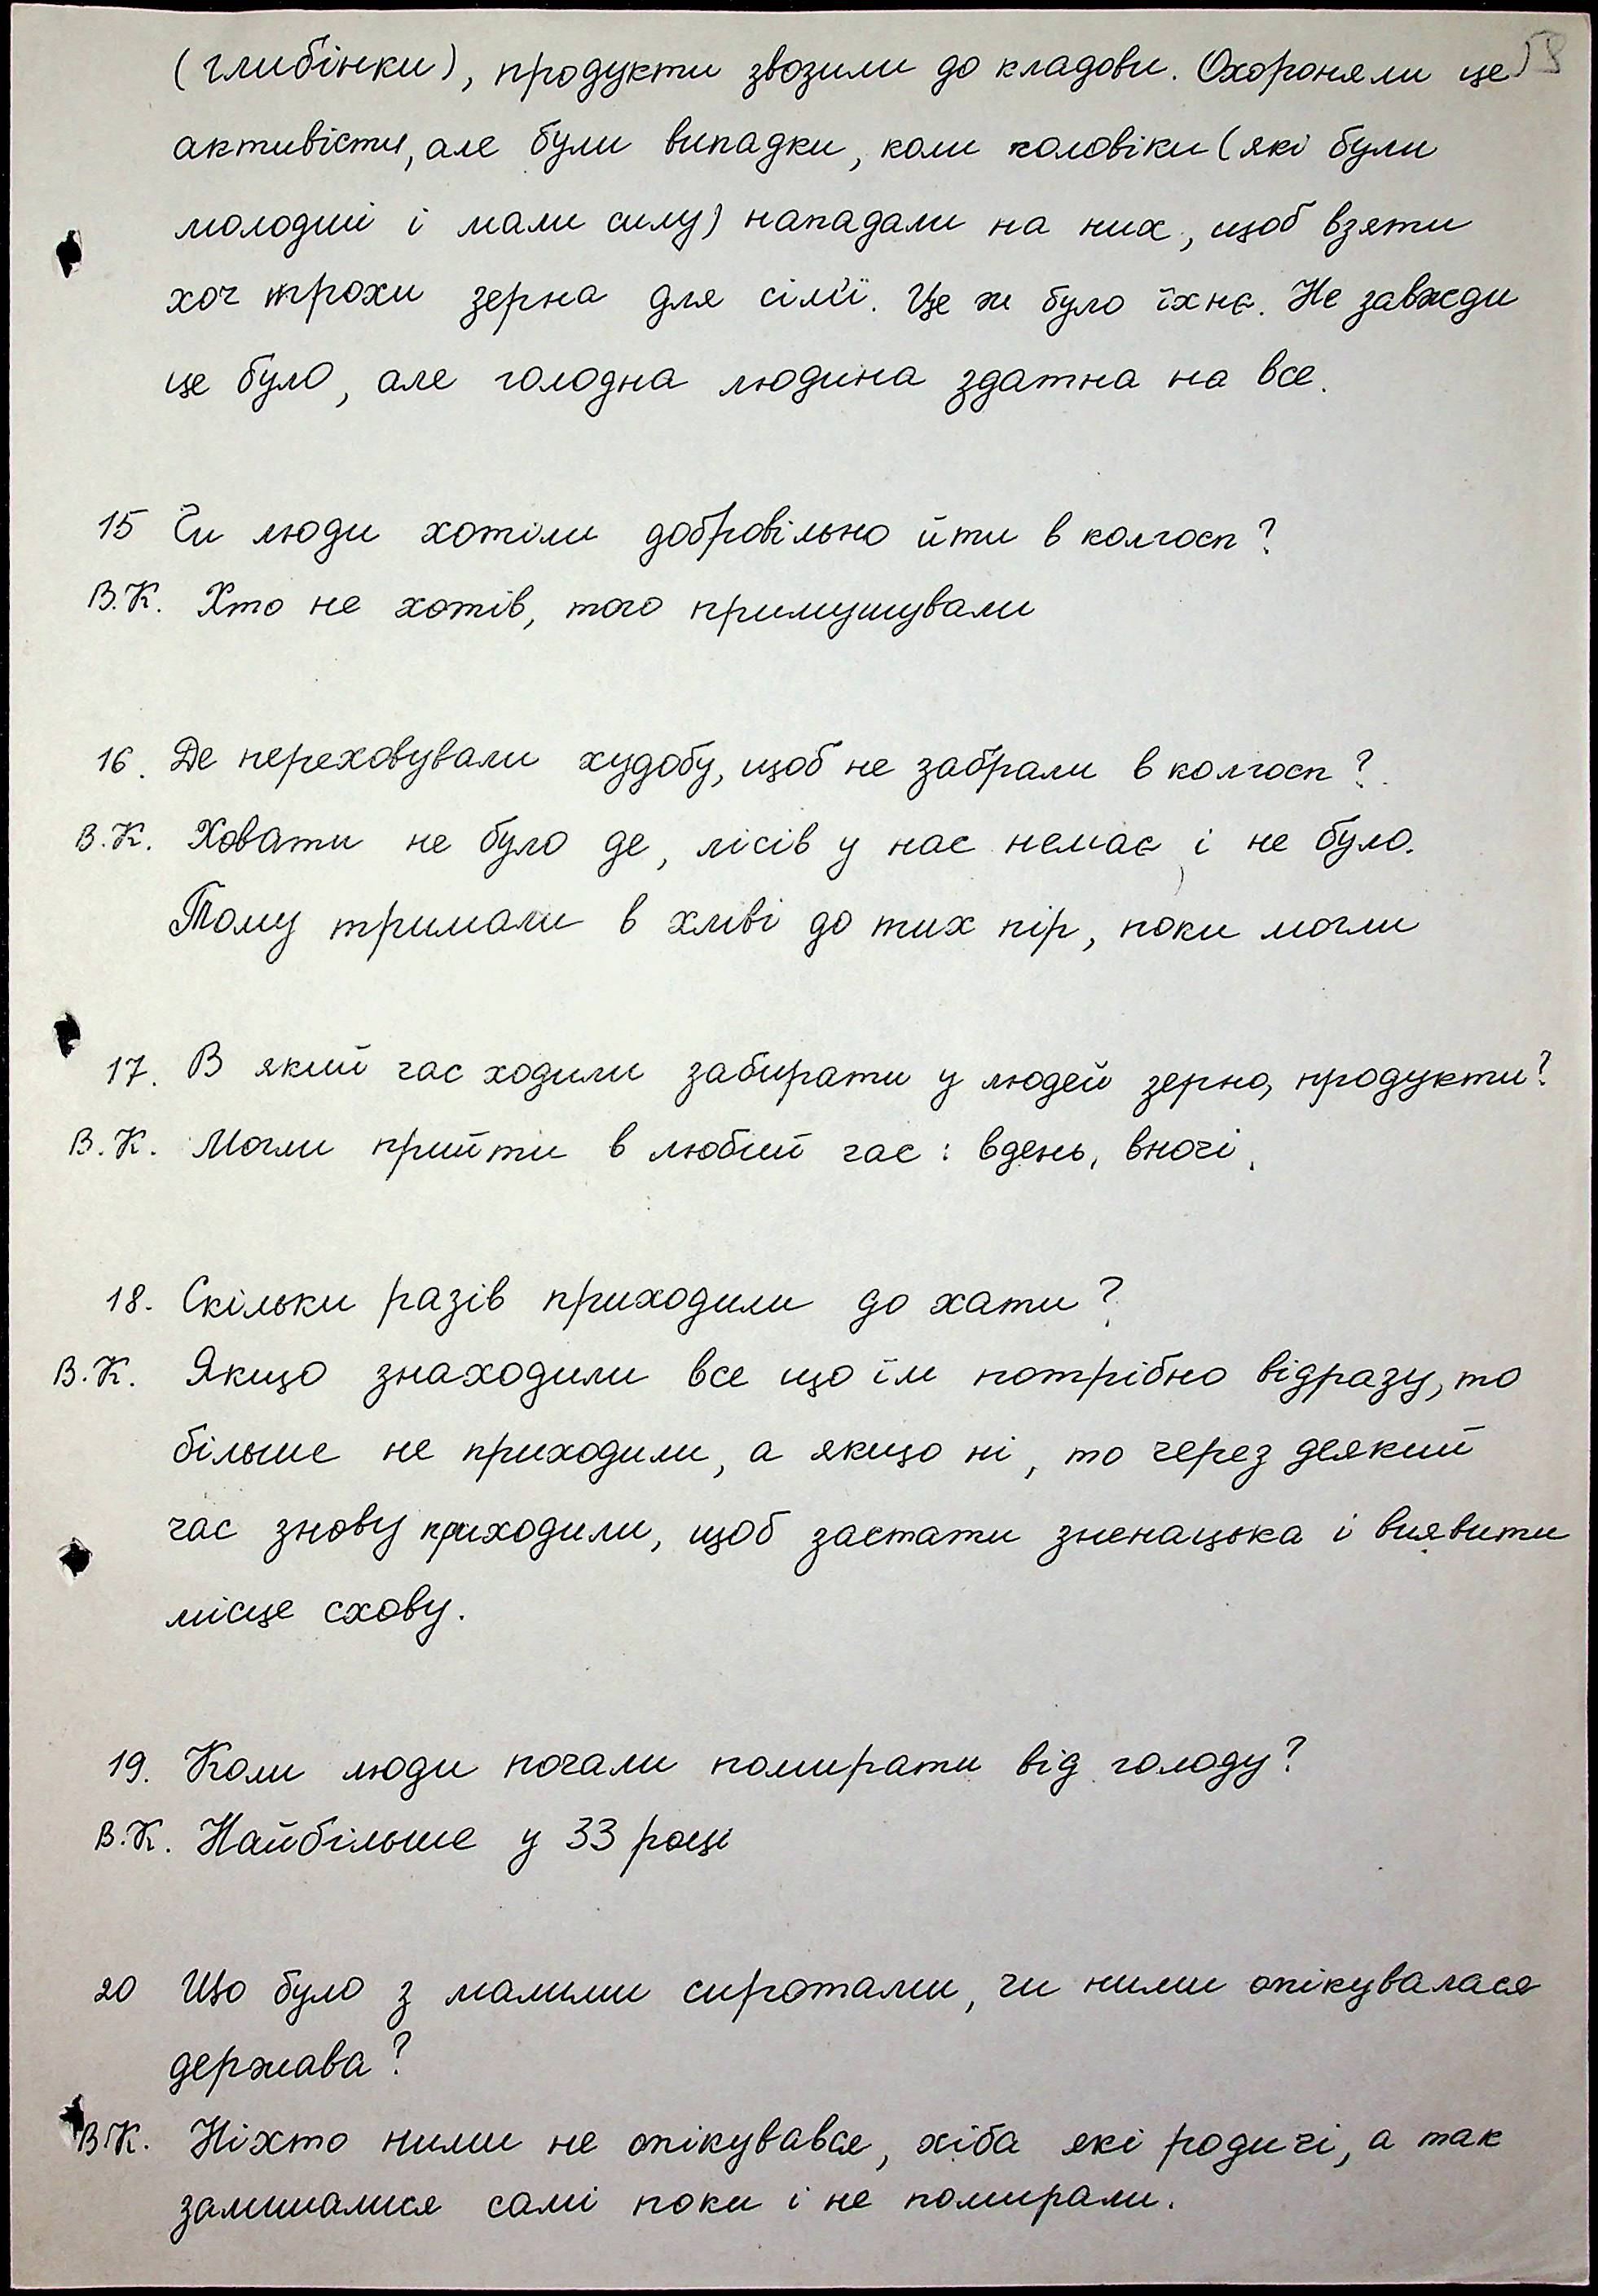 (глибінки), продукти звозили до кладови. Охороняли це
активісти, але були випадки, коли чоловіки (які були
молодші і мали силу) нападали на них, щоб взяти
хоч трохи зерна для сімї. Це ж було їхнє. Не завжди
це було, але голодна людина здатна на все.
15 Чи люди хотіли добровільно йти в колгосп?
В.К. Хто не хотів, того примушували
16. Де переховували худобу, щоб не забрали в колгосп?
В.К. Ховати не було де, лісів у нас немає і не було.
Тому тримали в хліві до тих пір, поки могли
17. В який час ходили забирати у людей зерно, продукти?
В.К. Могли прийти в любий час: вдень, вночі.
18. Скільки разів приходили до хати?
В.К. Якщо знаходили все що їм потрібно відразу, то
більше не приходили, а якщо ні, то через деякий
час знову приходили, щоб застати зненацька і виявити
місце схову.
19. Коли люди почали помирати від голоду?
В.К. Найбільше у 33 році
20 Що було з малими сиротами, чи ними опікувалася
держава?
В.К. Ніхто ними не опікувався, хіба які родичі, а так
залишалися самі поки і не помирали.